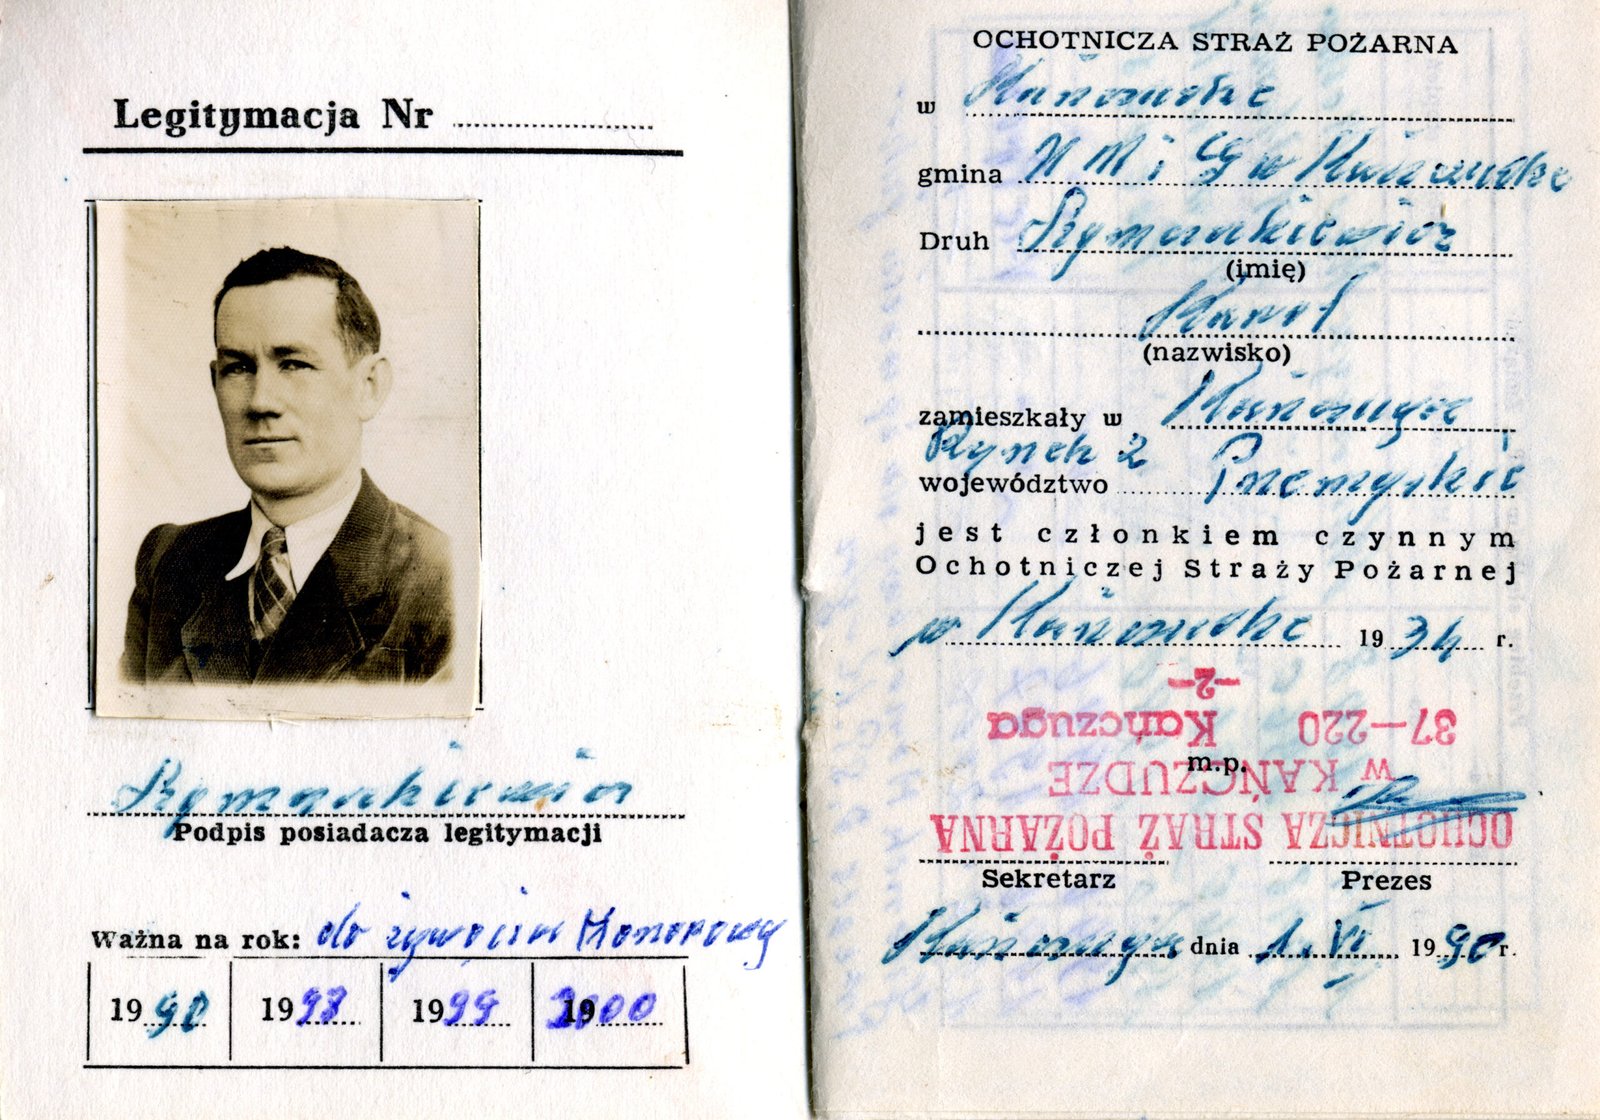 Legitymacja Nr
Podpis posiadacza legitymacji
Ważna na rok: do żywocia Honorowy
1990 1998 1999 2000
OCHOTNICZA STRAŻ POŻARNA
w
gmina M i G w
Druh
(imię)
Karol
(nazwisko)
zamieszkały w Kańczuga
Rynek 2
województwo Przemyskie
jest członkiem czynnym
Ochotniczej Straży Pożarnej
w 1934 r.
OCHOTNICZA STRAŻ POŻARNA
W KAŃCZUDZE
37-220 Kańczuga
-2-
m.p.
Sekretarz Prezes
Kańczuga dnia 1. VI 1990 r.